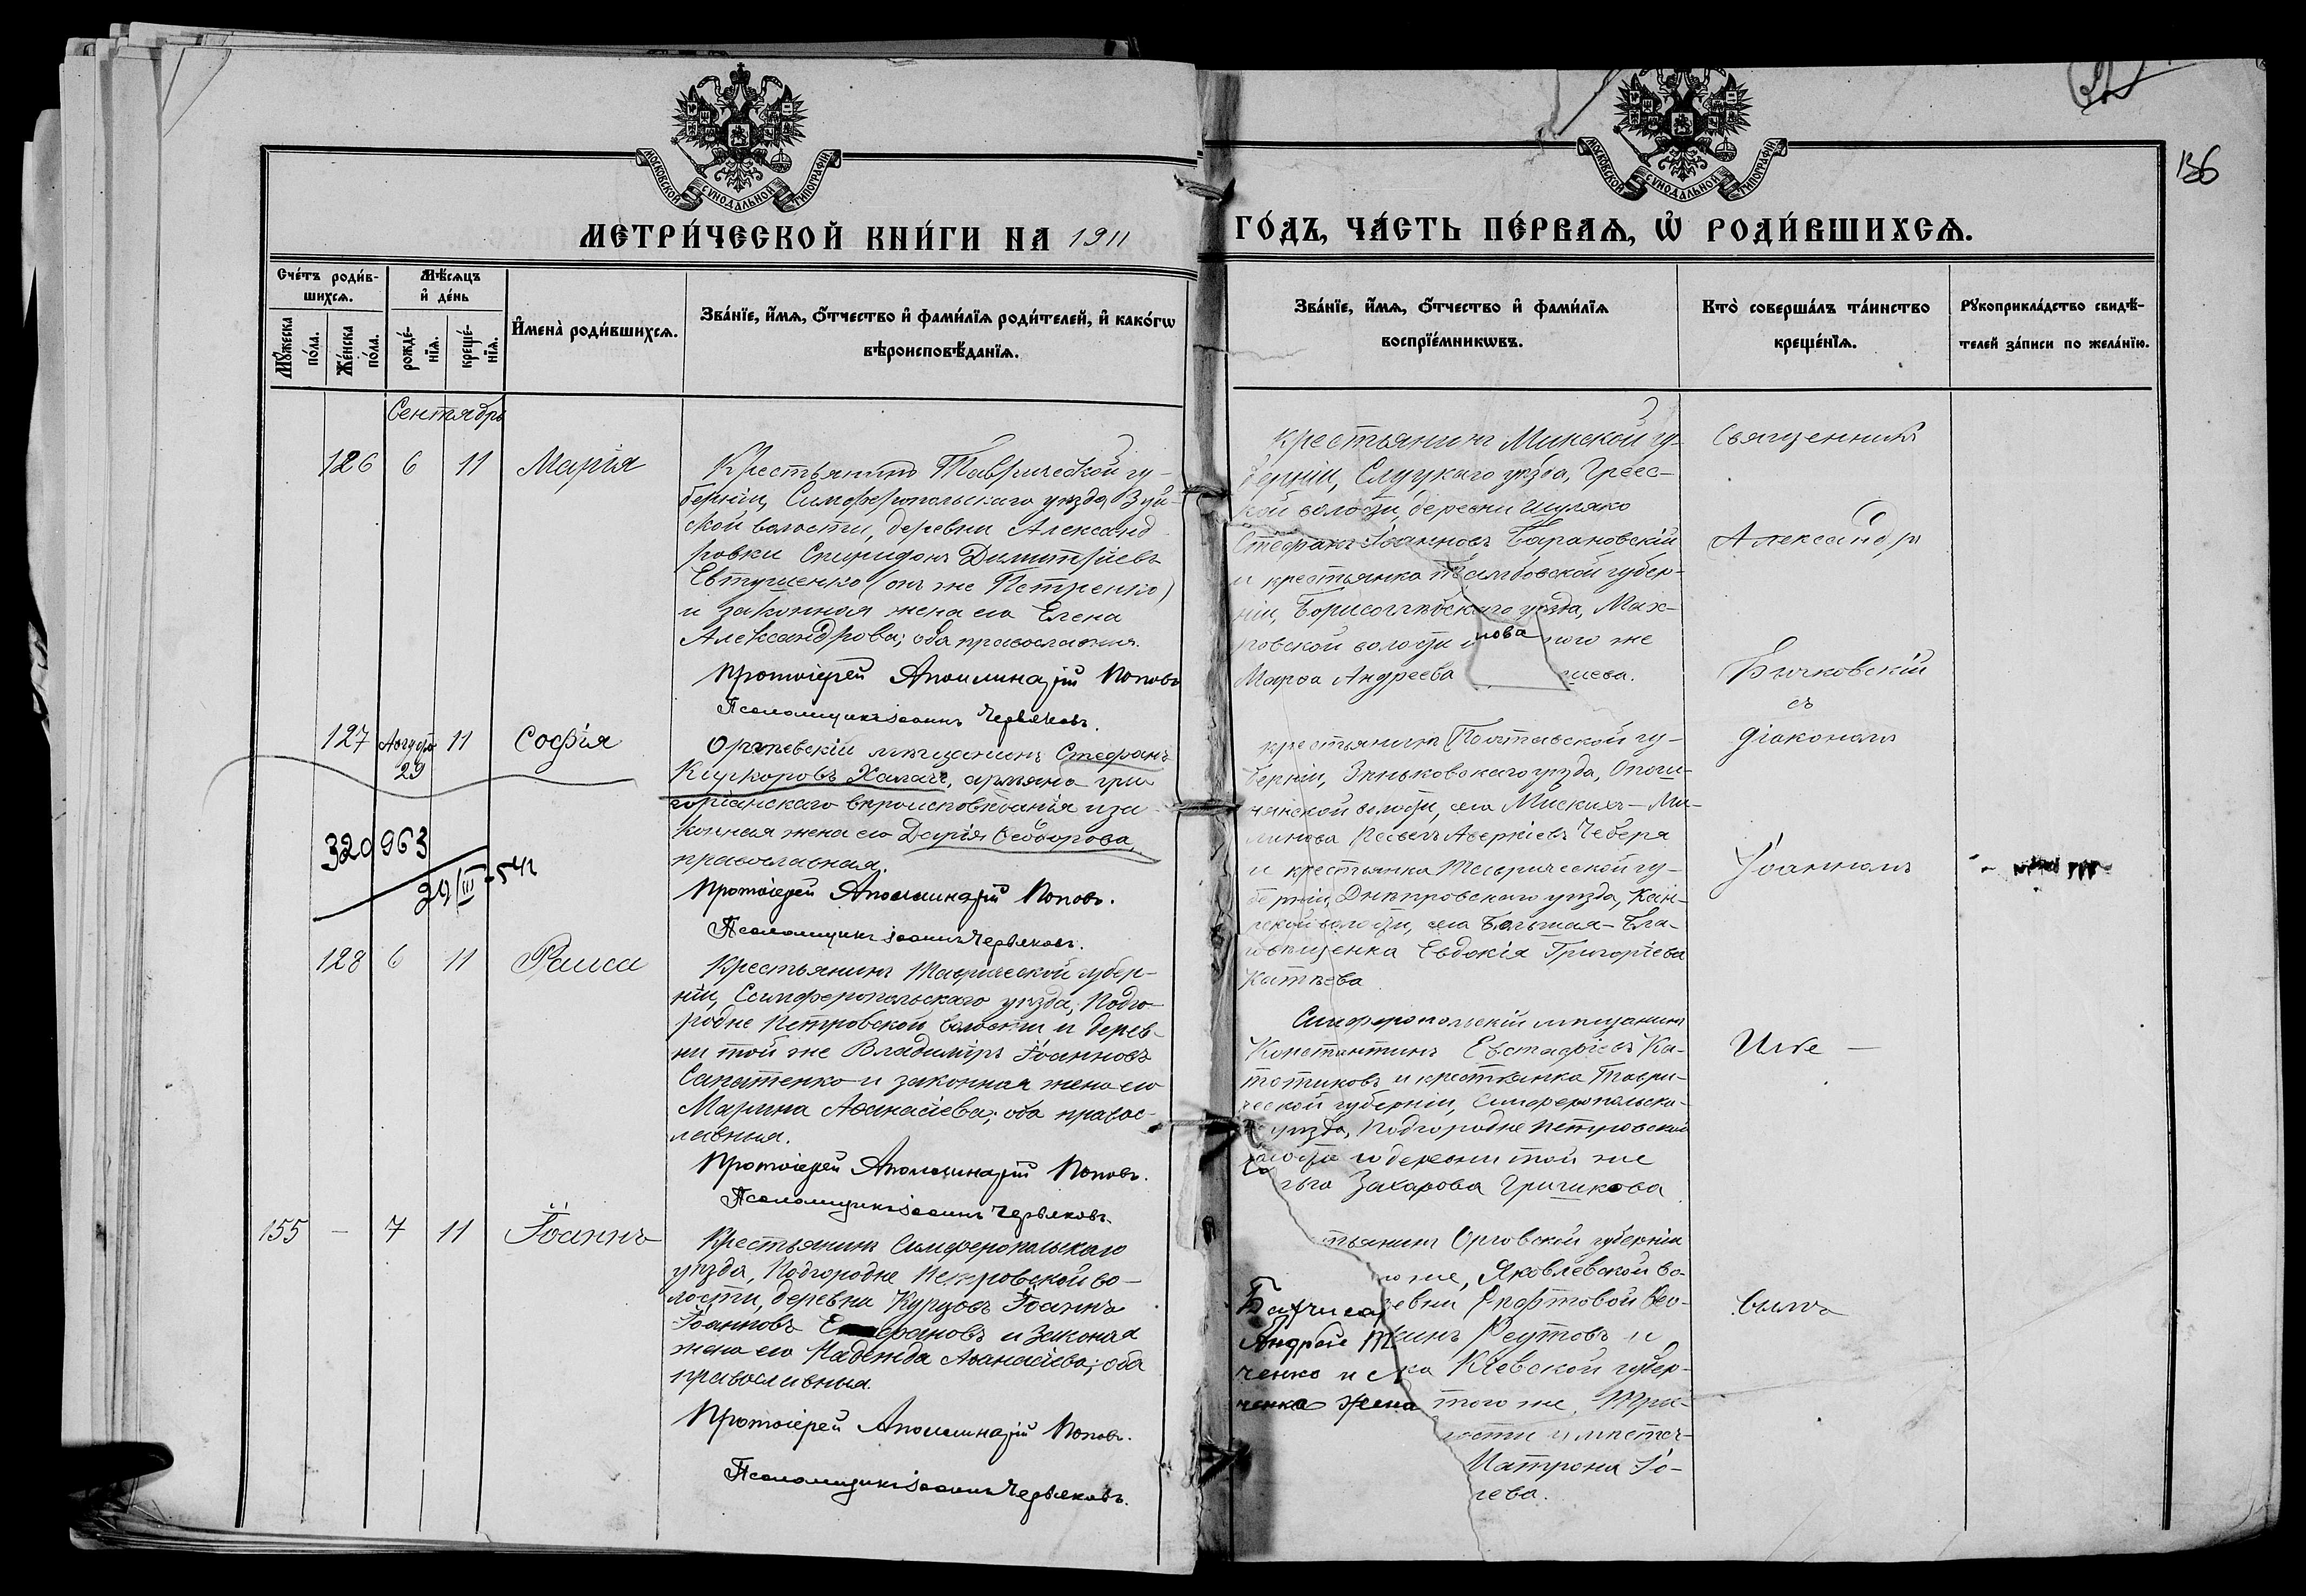 136
МОСКОВСКОЙ СѴНОДАЛЬНОЙ ТИПОГРАФІИ
МОСКОВСКОЙ СѴНОДАЛЬНОЙ ТИПОГРАФІИ
МЕТРИ́ЧЕСКОЙ КНИ́ГИ НА 1911
ГО́ДЪ, ЧА́СТЬ ПЕ́РВАѦ, Ѡ҆ РОДИ́ВШИХСѦ.
Сче́тъ роди́в-
шихсѧ.
Мѣ́сѧцъ
и҆ де́нь
Мꙋ́жеска
по́ла.
Же́нска
по́ла.
рожде́-
нїѧ.
креще́-
нїѧ.
И҆мена̀ роди́вшихсѧ.
Зва́нїе, и҆́мѧ, ѻ҆́тчество и҆ фами́лїѧ роди́телей, и҆ како́гѡ
вѣроисповѣ́данїѧ.
Зва́нїе, и҆́мѧ, ѻ҆́тчество и҆ фами́лїѧ
воспрїе́мникѡвъ.
Кто̀ соверша́лъ та́инство
креще́нїѧ.
Рꙋкоприкла́дство свидѣ́-
телей за́писи по жела́нїю.
Сентябрь
126 6 11 Марія
Крестьянинъ Таврической гу-
берніи, Симферопольскаго уѣзда, Зуй-
ской волости, деревни Александ
ровки Спиридонъ Димитріевъ
Евтушенко (онъ же Петренко)
и законная жена его Елена
Александрова; оба православные.
Протоіерей Аполлинарій Поповъ
Псаломщикъ Іоаннъ Червяковъ.
Крестьянинъ Минской гу-
берніи, Слуцкаго уѣзда, Греес-
кой волости, деревни Шуляко
Стефанъ Іоанновъ Барановскій
и крестьянка Тамбовской губер-
ніи, Борисоглѣбскаго уѣзда, Мах-
ровской волости и нова того же
Марѳа Андреева
Священникъ
Александръ
Бычковскій
съ
діакономъ
Іоанномъ
127 Августъ 29 11 Софія
Оргѣевскій мѣщанинъ Стефанъ
Халачъ, армяно гри
горіанскаго вѣроисповѣданія и за
конная жена его Дарія Ѳеодорова,
православная.
Протоіерей Аполлинарій Поповъ.
Псаломщикъ Іоаннъ Червяковъ.
320963
29/III-54г
крестьянинъ Полтавской гу-
берніи, Зѣньковскаго уѣзда, Опош-
нянской волости, села Мискихъ-Ми-
Павелъ Аверкіевъ Чеберя
и крестьянка Таврической гу-
берніи, Днѣпровскаго уѣзда, Каи-
рской волости, села Большая-Бла-
говѣщенка Евдокія Григоріева
128 6 11 Раиса
Крестьянинъ Таврической губер-
ніи, Симферопольскаго уѣзда, Подго-
родне Петровской волости и дерев-
ни той же Владиміръ Іоанновъ
Сапатенко и законная жена его
Марина Аѳанасіева; оба правос-
лавные.
Протоіерей Аполлинарій Поповъ.
Псаломщикъ Іоаннъ Червяковъ.
Симферопольскій мѣщанинъ
Константинъ Евстафіевъ Ка-
и крестьянка Таври-
ческой губерніи, Симферопольска-
го уѣзда, Подгородне Петровской
волости и деревни той же
Захарова Гришкова
Тѣ же
155 - 7 11 Іоаннъ
Крестьянинъ Симферопольскаго
уѣзда, Подгородне Петровской во-
лости, деревни Курцовъ Іоаннъ
Іоанновъ и законная
жена его Надежда Аѳанасіева; оба
православные.
Протоіерей Аполлинарій Поповъ.
Псаломщикъ Іоаннъ Червяковъ.
тьянинъ Орловской губерніи
го же, Яковлевской во-
Реутовъ и
ченко и ка Кіевской губер-
ченка жена того же,
Матрона Іо-